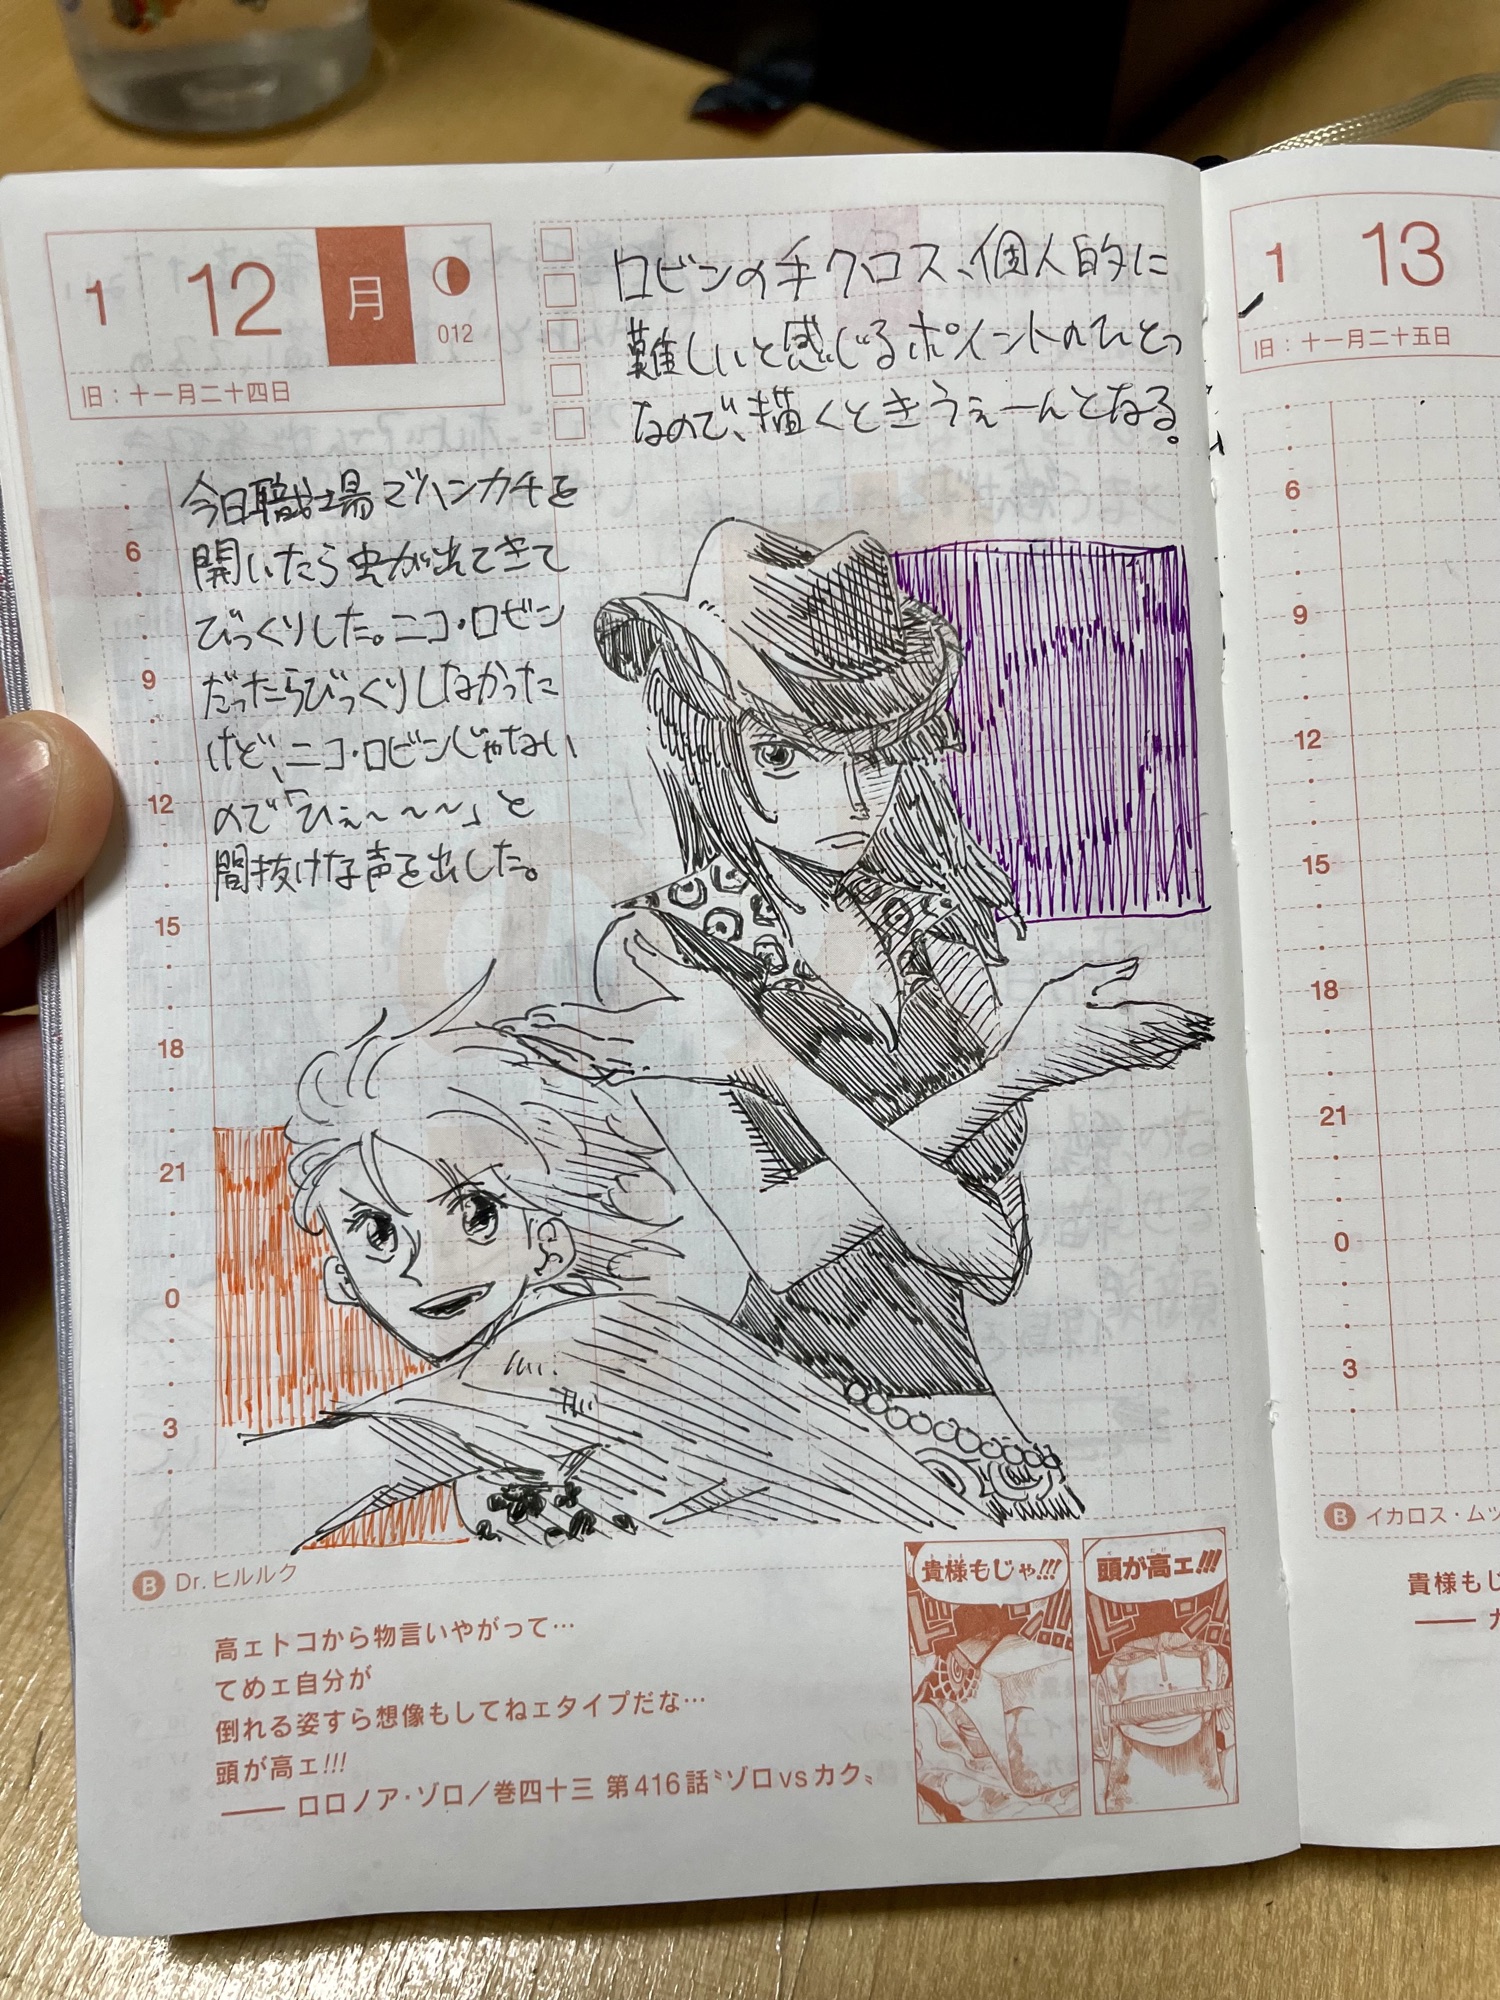 1 12 月
012
旧：十一月二十四日
ロビンの手クロス、個人的に
難しいと感じるポイントのひとつ
なので、描くときうぇーんとなる。
今日職場でハンカチを
開いたら虫が出てきて
びっくりした。ニコ・ロビン
だったらびっくりしなかった
けど、ニコ・ロビンじゃない
ので「ひぇ〜〜〜」と
間抜けな声を出した。
6
9
12
15
18
21
0
3
B Dr.ヒルルク
高ェトコから物言いやがって…
てめェ自分が
倒れる姿すら想像もしてねェタイプだな…
頭が高ェ!!!
—— ロロノア・ゾロ／巻四十三 第416話〝ゾロvsカク〟
貴様もじゃ!!!
頭が高ェ!!!
1 13
旧：十一月二十五日
6
9
12
15
18
21
0
3
B イカロス・ムッ
貴様もじ
——